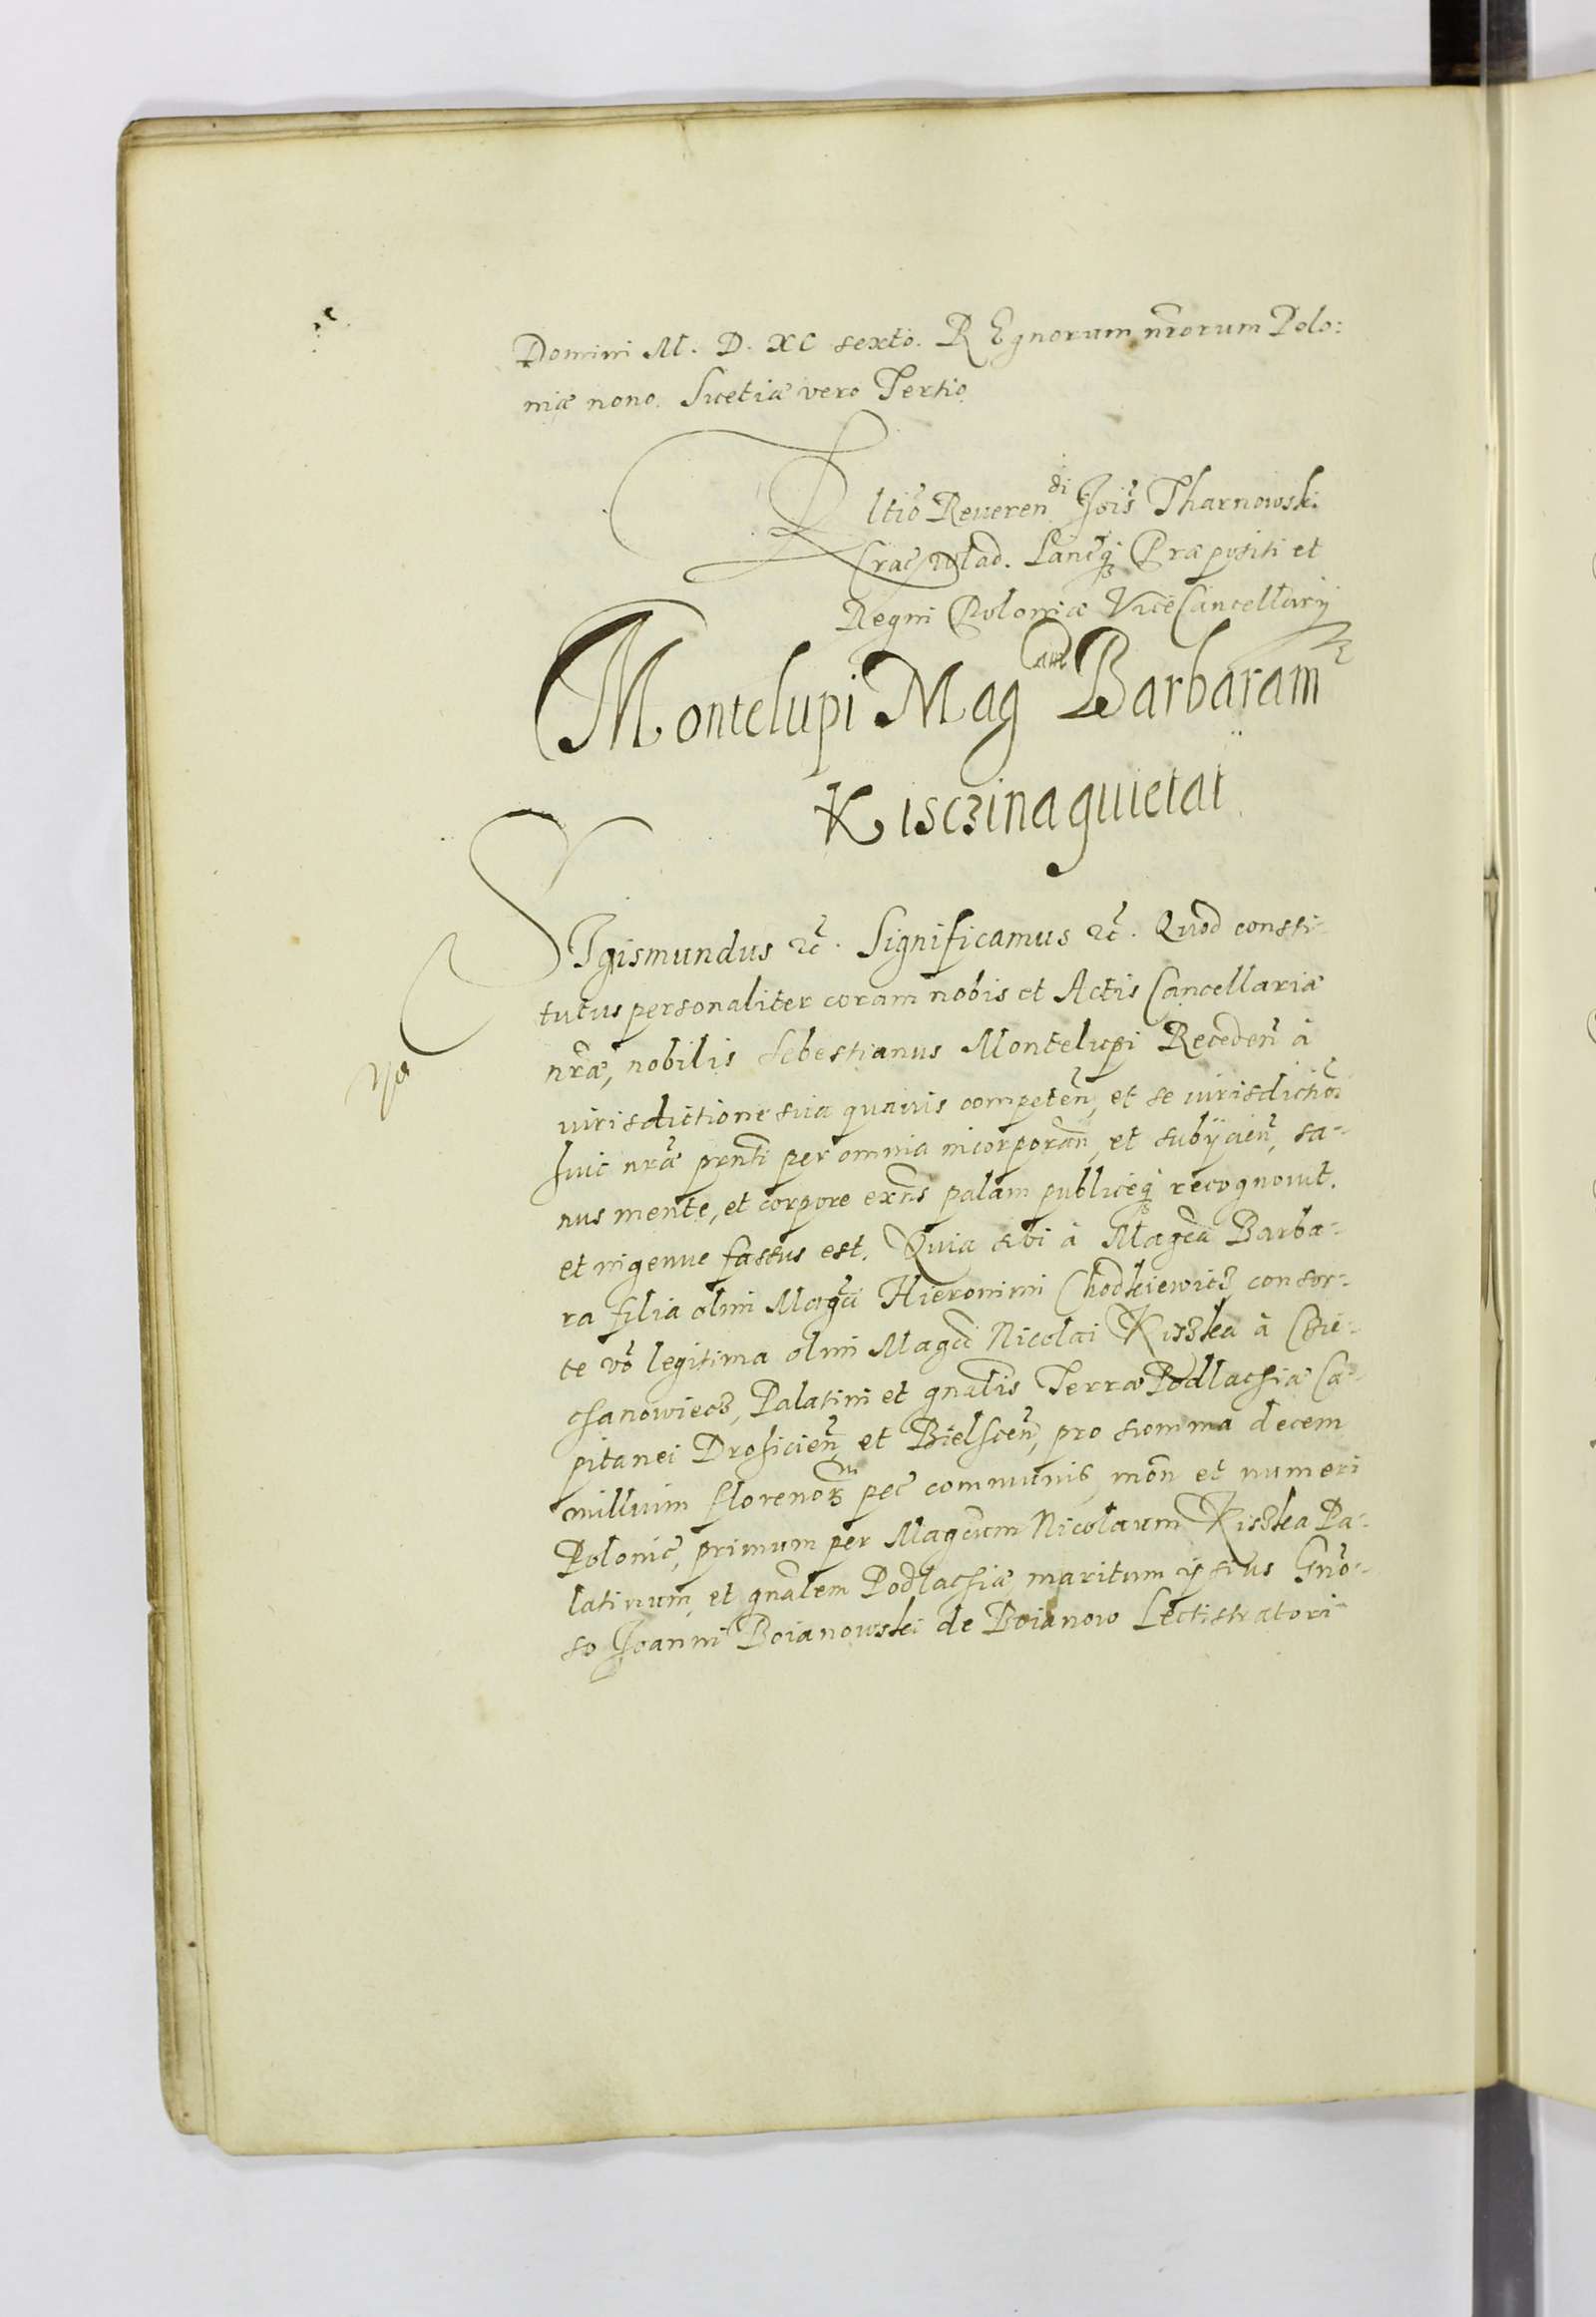 Domini M. D. XC sexto. REgnorum nr̃orum Polo:
niæ nono. Suetiæ vero Tertio
Rltiõ Reueren di Jois̃ Tharnowski
Crac̃ Wlad. Lancq̃ Præpositi et
Regni Poloniæ ViceCancellarij
Montelupi Mag cam Barbaram
Kisczina quietat
SIgismundus ꝛc̃. Significamus ꝛc̃. Quod consti-
tutus personaliter coram nobis et Actis Cancellariæ
nr̃æ, nobilis Sebestianus Montelupi Recedeñ à
iurisdictione sua quauis competeñ, et se iurisdictioĩ
huic nr̃æ pñti per omnia incorporañ, et subÿcieñ, sa-
nus mente, et corpore exñs palam publiceq̃ recognouit.
et ingenue fassus est. Quia sibi à Magc̃a Barba-
ra filia olim Magc̃i Hieronimi Chodkiewicz consor-
te võ legitima olim Magc̃i Nicolai Kiszka à Czie-
chanowiecz, Palatini et gnãlis Terræ Podlachiæ Ca-
pitanei Drohicieñ et Bielsceñ, pro summa decem
millium florenor̃ pec̃ communis mon̄ et numeri
Polonic̃, primum per Magc̃um Nicolaum Kiszka Pa-
latinum et gnãlem Podlachiæ maritum ipsius Gnõ-
so Joanni Boianowski de Boianow Lectistratori